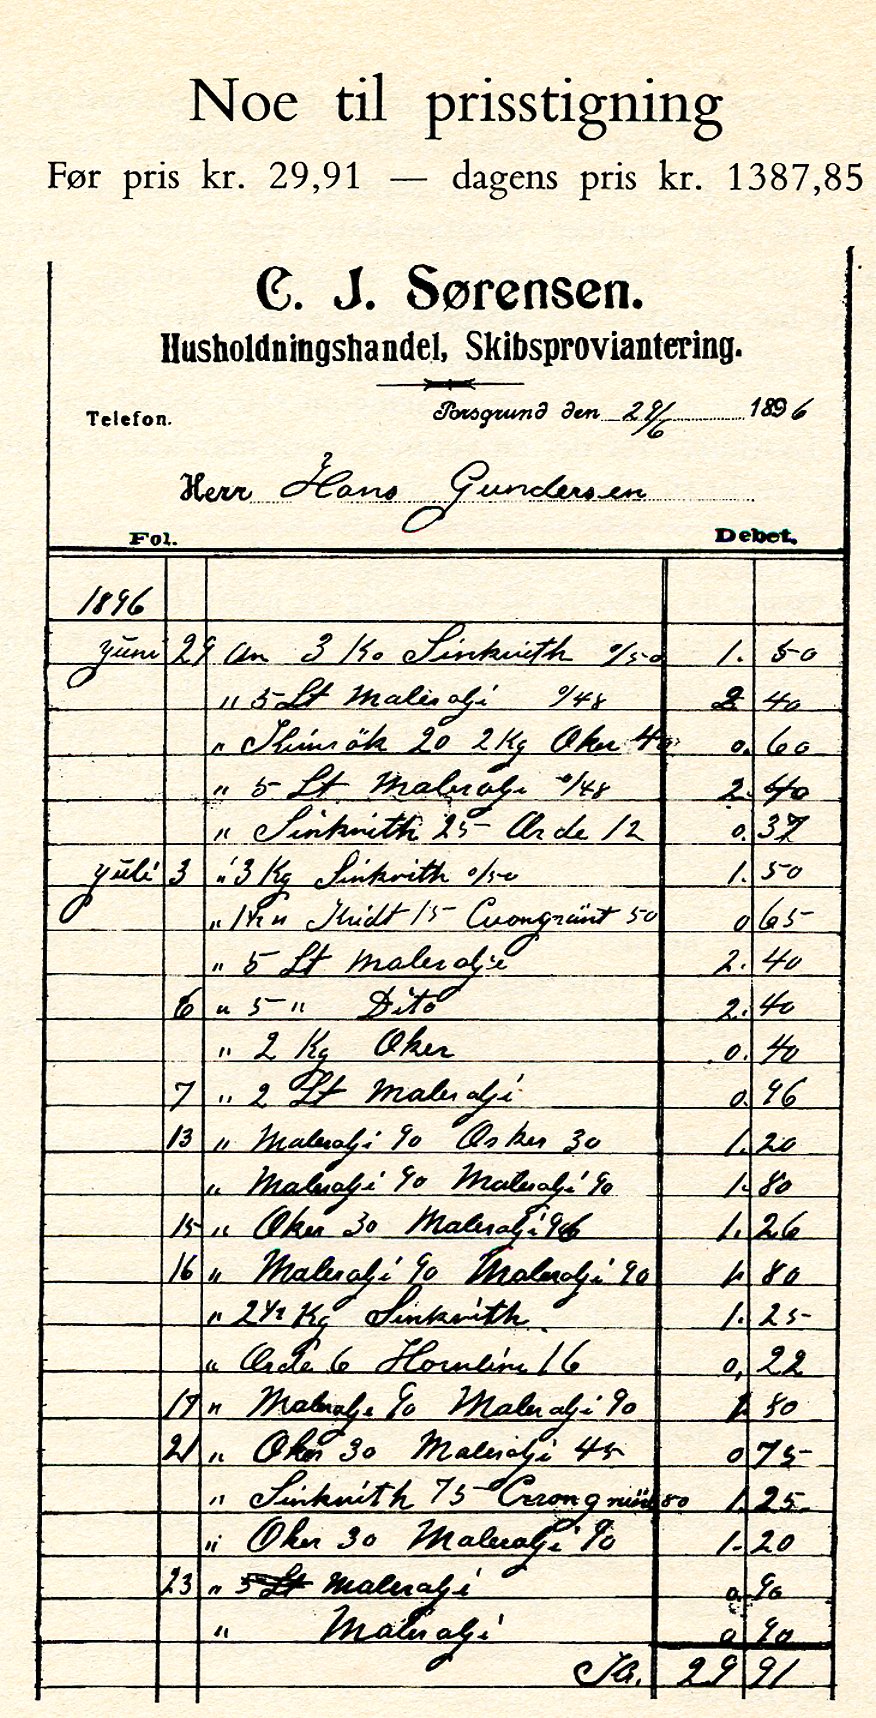 Noe til prisstigning
Før pris kr. 29,91 — dagens pris kr. 1387,85
C. J. Sørensen.
Husholdningshandel, Skibsproviantering.
Telefon. Porsgrund den 29/6 1896
Herr Hans Gundersen
Fol. Debet.
1896
Juni 29 an 3 Ko Sinkvith 0/50 1. 50
" 5 Lt Maleralji 0/48 2 40
" 20 2 Kg Oker 40 0. 60
" 5 Lt Maleralje 0/48 2. 40
" Sinkvith 25 Orde 12 0. 37
Juli 3 " 3 Kg Sinkvith 0/50 1. 50
" 1½ " Kridt 15 Crongrünt 50 0 65
" 5 Lt Maleralje 2. 40
6 " 5 " Dito 2. 40
" 2 Kg Oker 0. 40
7 " 2 Lt Maleralji 0. 96
13 " Maleralji 90 Osker 30 1. 20
" Maleralji 90 Maleralji 90 1. 80
15 " Oker 30 Maleralji 96 1. 26
16 " Maleralji 90 Maleralji 90 1. 80
" 2½ Kg Sinkvith 1. 25
" Orde 6 Hornlim 16 0, 22
17 " Maleralje 90 Maleralji 90 1. 80
21 " Oker 30 Maleralji 45 0 75
" Sinkvith 75 80 1. 25
" Oker 30 Maleralji 90 1. 20
23 " Maleralji 0. 90
" Maleralji 0 90
Kr. 29 91